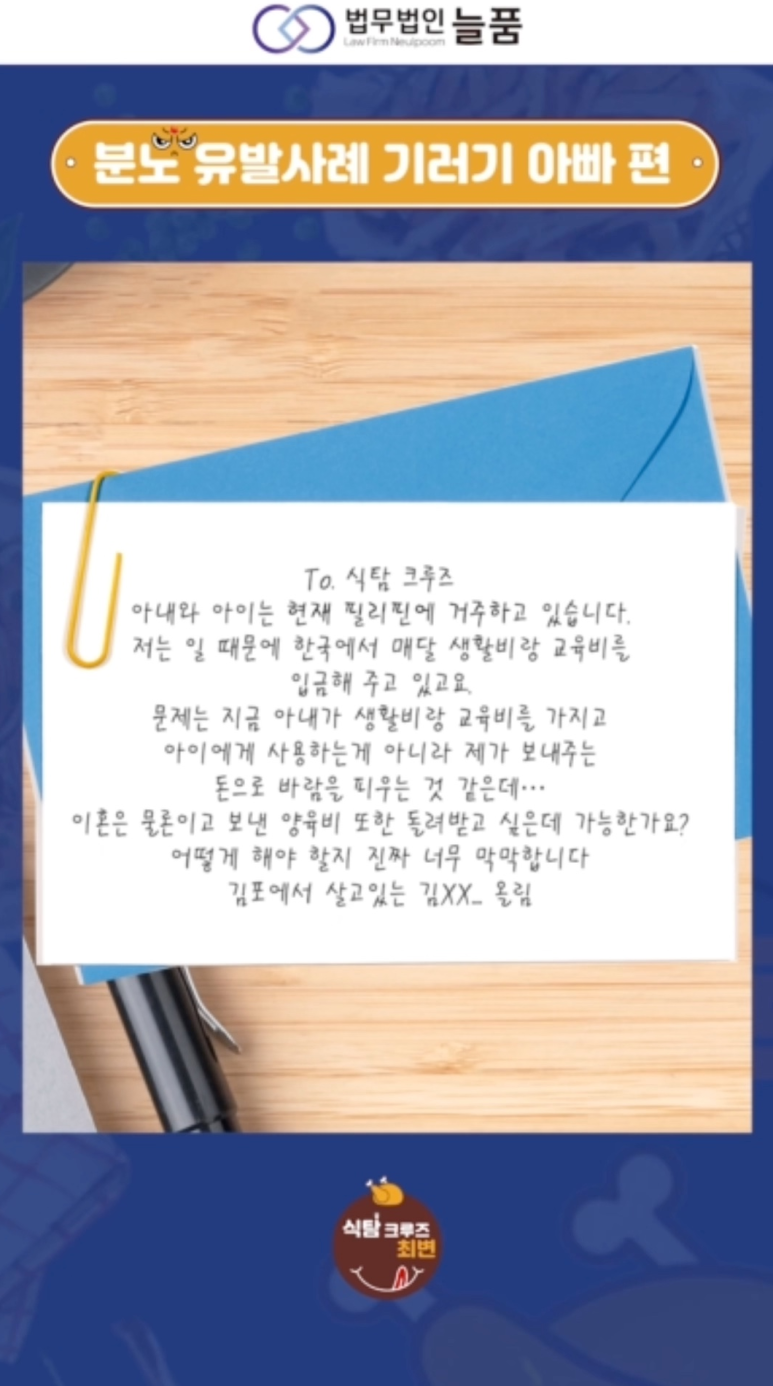 법무법인 늘품
Law Firm Neulpoom
분노 유발사례 기러기 아빠 편
To. 식탐 크루즈
아내와 아이는 현재 필리핀에 거주하고 있습니다.
저는 일 때문에 한국에서 매달 생활비랑 교육비를
입금해 주고 있고요.
문제는 지금 아내가 생활비랑 교육비를 가지고
아이에게 사용하는게 아니라 제가 보내주는
돈으로 바람을 피우는 것 같은데...
이혼은 물론이고 보낸 양육비 또한 돌려받고 싶은데 가능한가요?
어떻게 해야 할지 진짜 너무 막막합니다
김포에서 살고있는 김XX... 올림
식탐 크루즈
최변